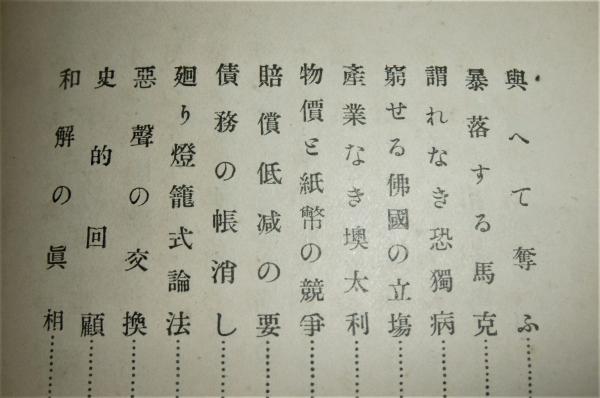 與へて奪ふ
暴落する馬克
謂れなき恐獨病
窮せる佛國の立塲
產業なき墺太利
物價と紙幣の競爭
賠償低減の要
債務の帳消し
廻り燈籠式論法
惡聲の交換
史的回顧
和解の眞相